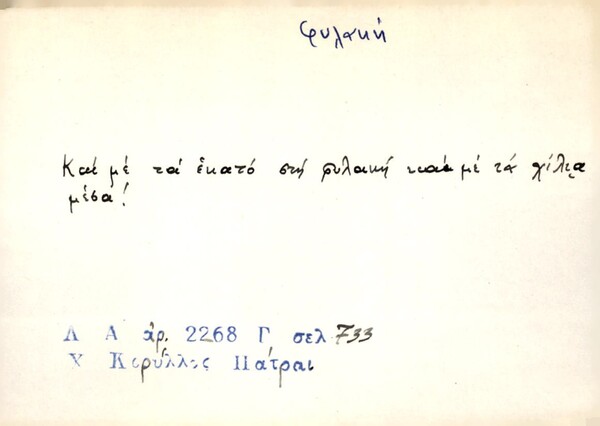 φυλακή
Καί μέ τά ἑκατό στή φυλακή καί μέ τά χίλια
μέσα!
Λ Α ἀρ. 2268 Γ σελ 733
Χ Κορύλλος Πάτραι